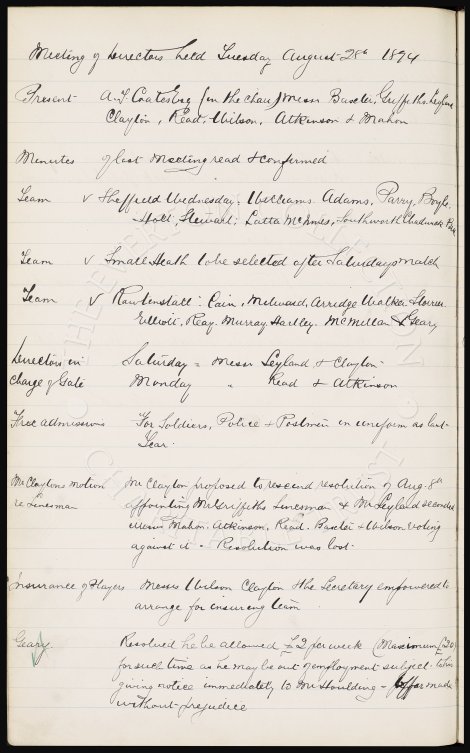 Meeting of Directors held Tuesday August 28th 1894
Present A.T. Coates Esq (in the chair) Messrs Baxter, Griffiths, Leyland
Clayton, Read, Wilson, Atkinson & Mahon
Minutes of last Meeting read & confirmed
Team v Sheffield Wednesday: Williams. Adams, Parry, Boyle.
Holt, Stewart; Latta McInnes, Southworth Chadwick
Team v Small Heath to be selected after Saturdays match
Team v Rawtenstall: Cain, Milward, Arridge Walker Storrier
Elliott, Reay. Murray Hartley. McMillan & Geary
Directors in Saturday = Messrs Leyland & Clayton
Charge of Gate Monday " Read & Atkinson
Free admissions For Soldiers, Police & Postmen in uniform as last
Year.
Mr Claytons motion Mr Clayton proposed to rescind resolution of Aug. 8th
re Linesman appointing Mr Griffiths Linesman & Mr Leyland seconded
Messrs Mahon. Atkinson, Read. Baxter & Wilson voting
against it - Resolution was lost.
Insurance of Players Messrs Wilson Clayton & the Secretary empowered to
arrange for insuring team
Geary. Resolved he be allowed £2 per week (Maximum £20)
for such time as he may be out of employment subject to his
giving notice immediately to Mr Houlding - offer made
without prejudice